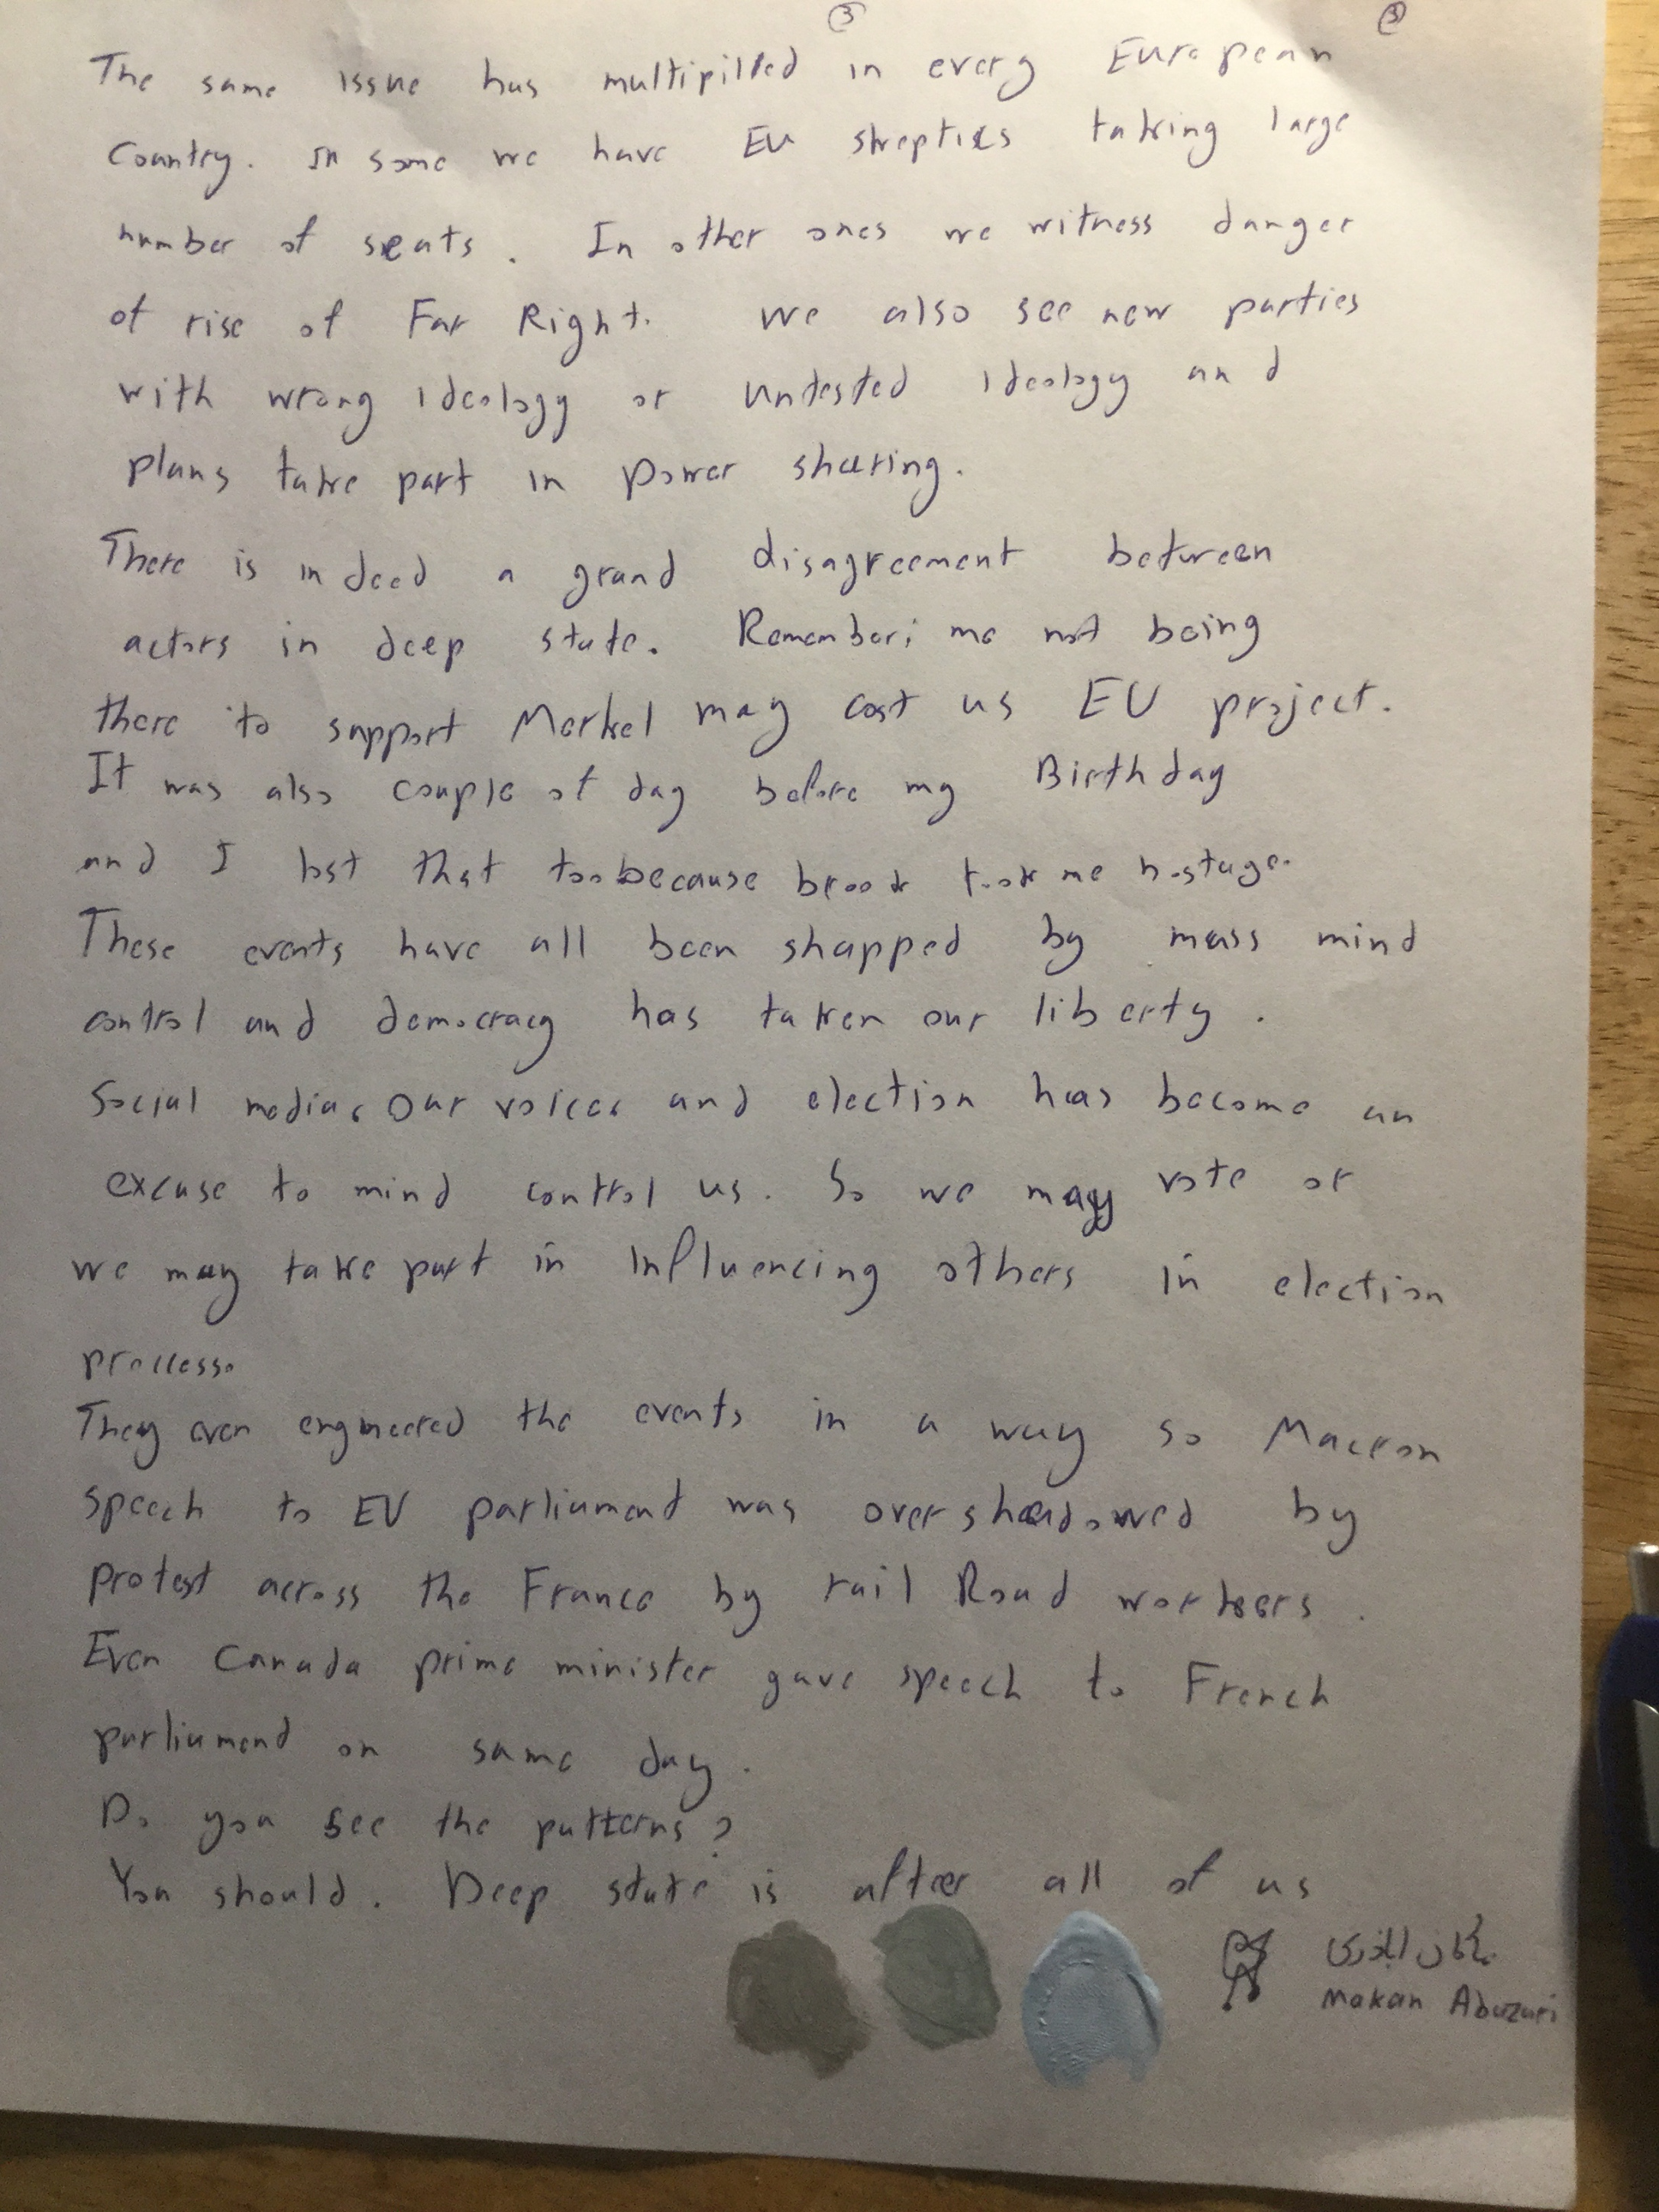 ③ ③
The same issue has multipilled in every European
Country. In some we have EU skeptics taking large
number of seats. In other ones we witness danger
of rise of Far Right. We also see new parties
with wrong ideology or untested ideology and
plans take part in power sharing.
There is indeed a grand disagreement between
actors in deep state. Remember; me not being
there to support Merkel may cost us EU project.
It was also couple of day before my Birthday
and I lost that too because brook took me hostage.
These events have all been shapped by mass mind
control and democracy has taken our liberty.
Social media, our voices and election has become an
excuse to mind control us. So we may vote or
we may take part in influencing others in election
proccess.
They even engineered the events in a way so Macron
speech to EU parliamend was overshadowed by
protest across the France by rail Road workers.
Even Canada prime minister gave speech to French
parliamend on same day.
Do you see the patterns?
You should. Deep state is after all of us
Makan Abuzari